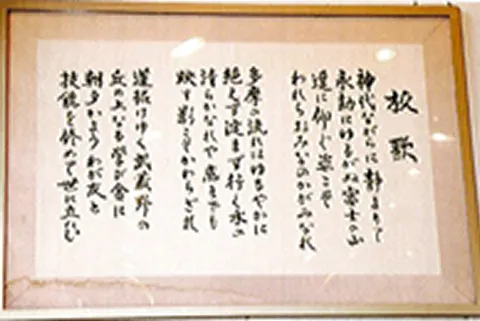 校歌
神代ながらに静もりて
永劫にゆるがぬ富士の山
遥に仰ぐ姿こそ
われらおみなのかがみなれ
多摩の流れはゆるやかに
絶えず淀まず行く水の
清らかなれや底までも
映す影こそかわらざれ
道拓けゆく武蔵野の
丘の上なる学び舎に
朝夕かようわが友と
技能を修めて世に立たむ